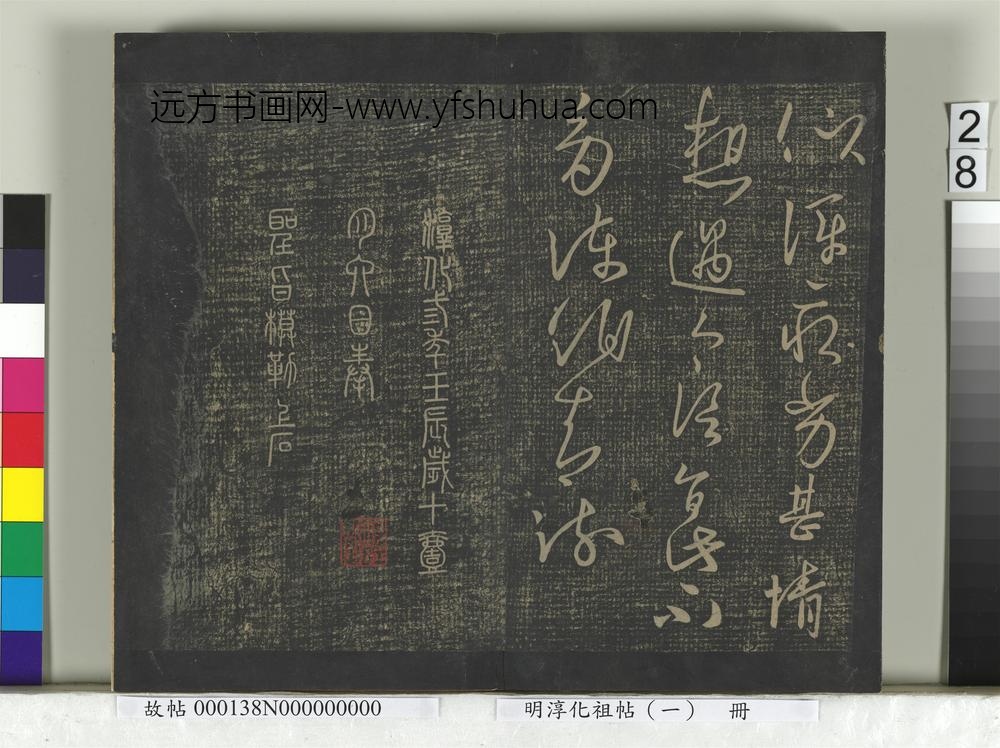 远方书画网-www.yfshuhua.com
仰深勞甚情
想遇信復具不
多陳伯智諮
淳化弎年壬辰歲十壹
月六日奉
聖旨模勒上石
2
8
故帖 000138N000000000
明淳化祖帖（一） 冊